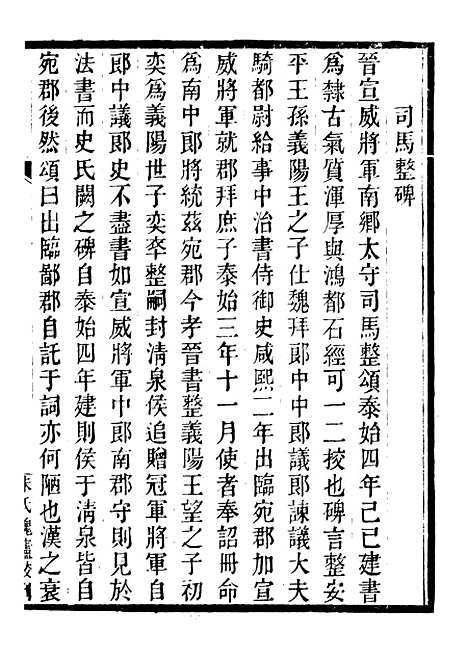 司馬整碑
晉宣威將軍南鄉太守司馬整頌泰始四年己巳建書
爲隸古氣質渾厚與鴻都石經可一二挍也碑言整安
平王孫義陽王之子仕魏拜郞中中郞議郞諫議大夫
騎都尉給事中治書侍御史咸熙二年出臨宛郡加宣
威將軍就郡拜庶子泰始三年十一月使者奉詔冊命
爲南中郞將統茲宛郡今孝晉書整義陽王望之子初
奕爲義陽世子奕卒整嗣封淸泉侯追贈冠軍將軍自
郞中議郞史不盡書如宣威將軍中郞南郡守則見於
法書而史氏闕之碑自泰始四年建則侯于淸泉皆自
宛郡後然頌曰出臨鄙郡自託于詞亦何陋也漢之衰
朱氏槐廬校刋